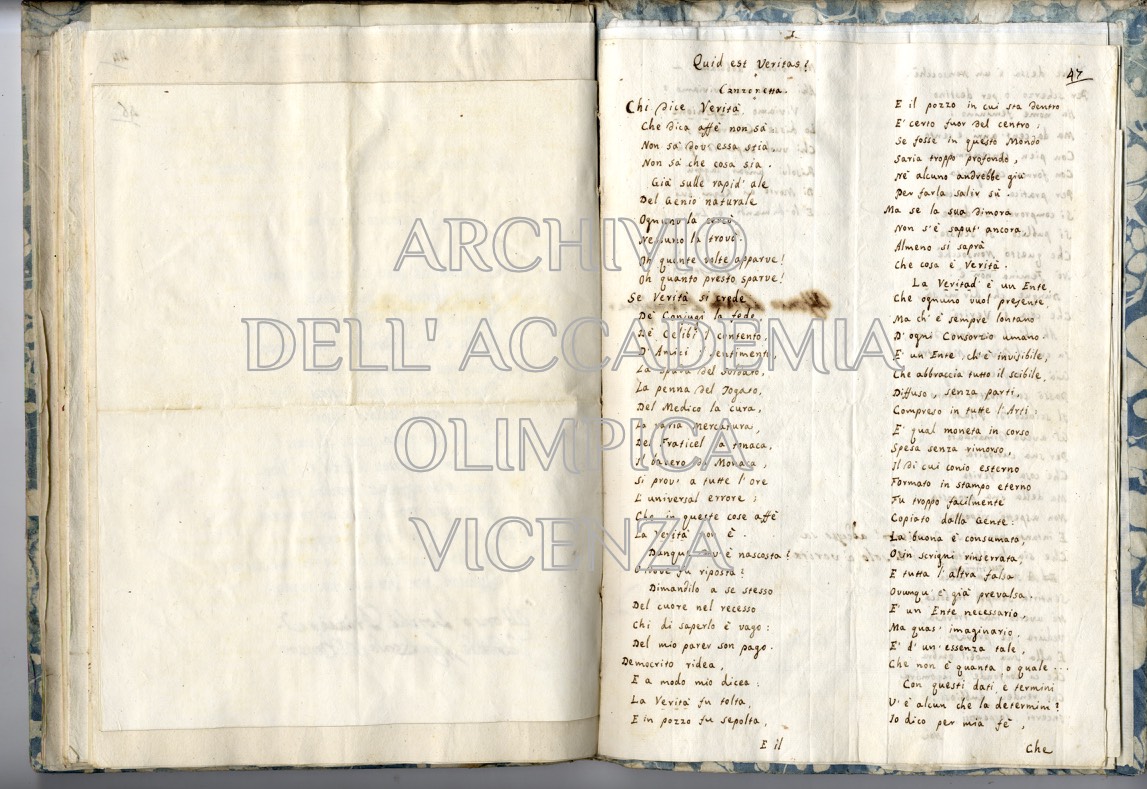 1
47
Quid est Veritas?
Canzonetta.
Chi dice Verità
Che dica affè non sà
Non sà dov' essa stia,
Non sà che cosa sia.
Già sulle rapid' ale
Del Genio naturale
Ognuno la cercò
Nessuno la trovò.
Oh quante volte apparve!
Oh quanto presto sparve!
Se Verità si crede
De' Coniugi la fede,
De' Celibi il contento,
D' Amici i sentimenti,
La spada del Soldato,
La penna del Togato,
Del Medico la cura,
La varia Mercatura,
Del Fraticel la tonaca,
Il bavero di Monaca,
Si prov' a tutte l' ore
L' universal errore;
Che in queste cose affè
La Verità non è.
Dunque dov' è nascosta?
O dove fu riposta?
Dimandilo a se stesso
Del cuore nel recesso
Chi di saperlo è vago:
Del mio parer son pago.
Democrito ridea,
E a modo mio dicea:
La Verità fu tolta,
E in pozzo fu sepolta,
E il
E il pozzo in cui sta dentro
E' certo fuor del centro;
Se fosse in questo Mondo
Saria troppo profondo,
Nè alcuno andrebbe giù
Per farla salir sù.
Ma se la sua dimora
Non s'è saput' ancora,
Almeno si saprà
Che cosa è Verità.
La Veritad' è un Ente
Che ognuno vuol presente,
Ma ch' è sempre lontano
D' ogni Consorzio umano.
E' un Ente, ch'è invisibile,
Che abbraccia tutto il scibile,
Diffuso, senza parti,
Compreso in tutte l' Arti:
E' qual moneta in corso
Spesa senza rimorso,
Il di cui conio esterno
Formato in stampo eterno
Fu troppo facilmente
Copiato dalla Gente.
La buona è consumata,
O in scrigni rinserrata,
E tutta l' altra falsa
Ovunqu' è già prevalsa.
E' un Ente necessario,
Ma quas' imaginario;
E' d' un' essenza tale,
Che non è quanta, o quale...
Con questi dati, e termini
V' è alcun che la determini?
Io dico per mia fè,
Che
ARCHIVIO
DELL' ACCADEMIA
OLIMPICA
VICENZA